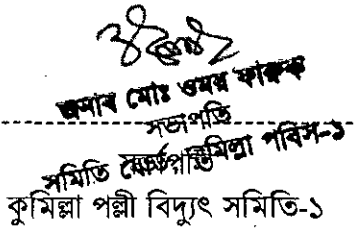 জনাব মোঃ ওমর ফারুক
সভাপতি
সমিতি বোর্ড, কুমিল্লা পবিস-১
সভাপতি
কুমিল্লা পল্লী বিদ্যুৎ সমিতি-১